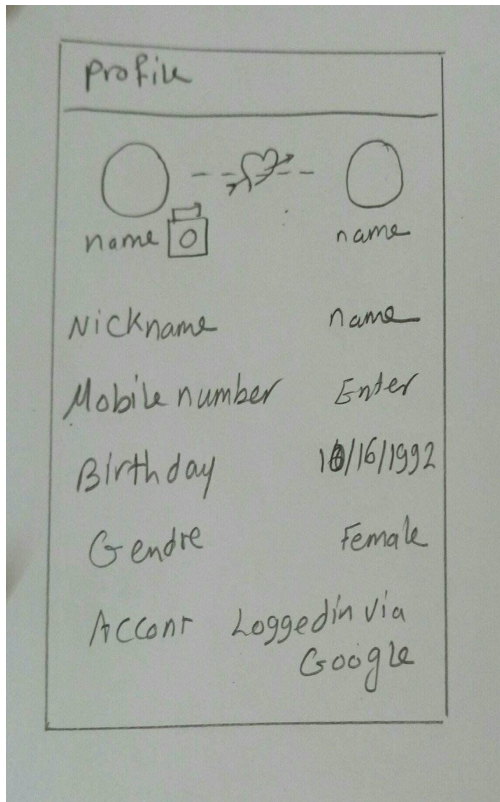 Profile
name name
Nickname name
Mobile number Enter
Birthday 10/16/1992
Gendre Female
Accont Loggedin via
Google